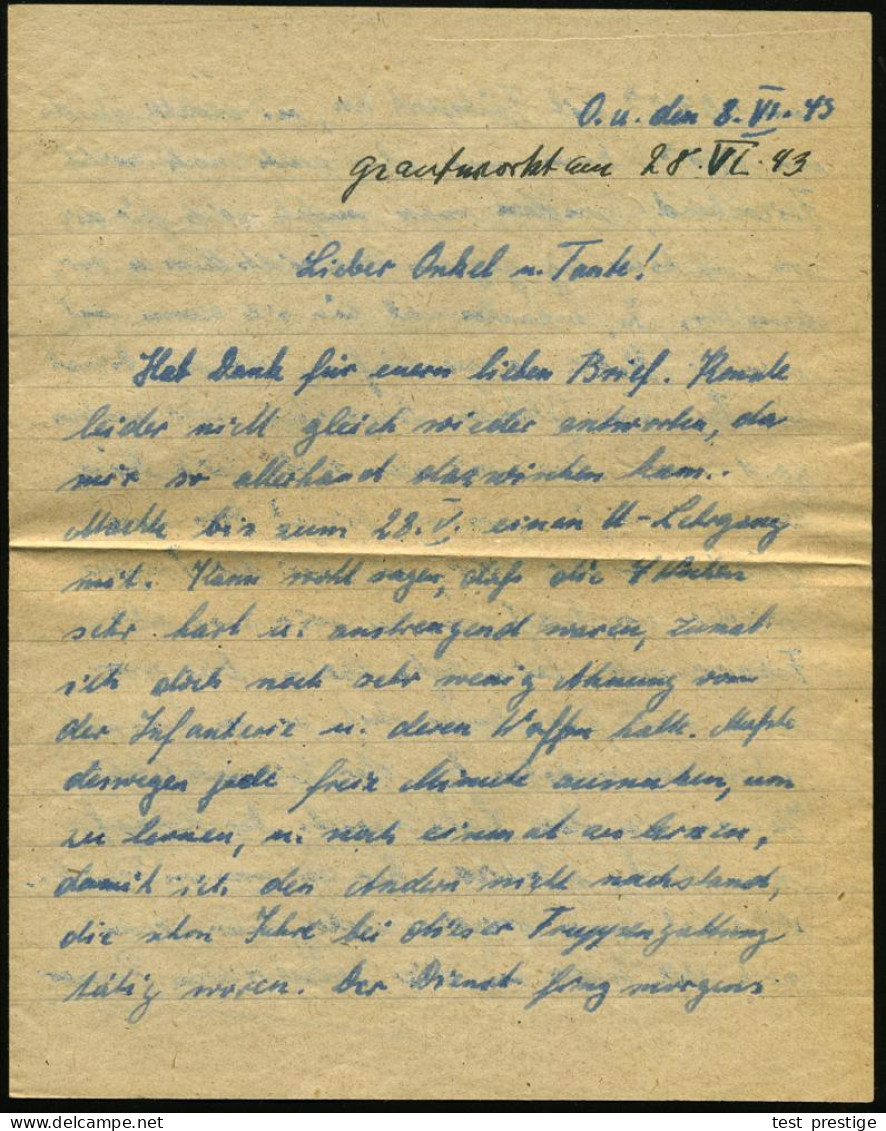 O.u. den 8. VI. 43
geantwortet am 28. VI. 43
Lieber Onkel u. Tante!
Hat Dank für euern lieben Brief. Konnte
leider nicht gleich wieder antworten, da
mir so allerhand dazwischen kam.
Machte bis zum 28. V. einen U-Lehrgang
mit. Kann wohl sagen, daß die 4 Wochen
sehr hart u. anstrengend waren, zumal
ich doch noch sehr wenig Ahnung von
der Infanterie u. deren Waffen hatte. Mußte
deswegen jede freie Minute ausnutzen, um
zu lernen, u. noch einmal zu lernen,
damit ich den Andern nicht nachstand,
die schon Jahre bei dieser Truppengattung
tätig waren. Der Dienst fing morgens
test prestige